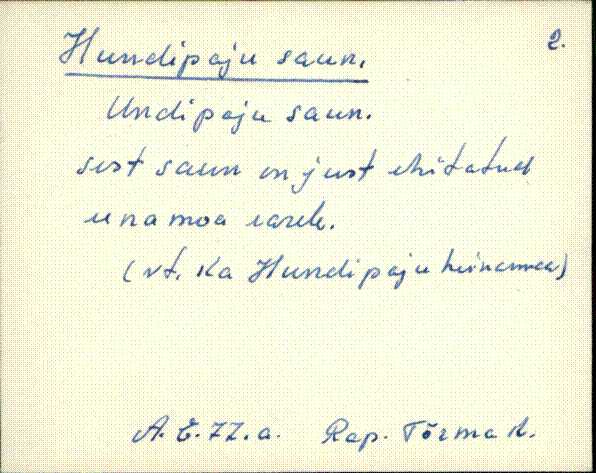 2.
Hundipaju saun.
Undipaju saun.
sest saun on just ehitatud
maa
(vt. ka Hundipaju heinamaa)
A. E. 77. a. Rap. Tõrma k.